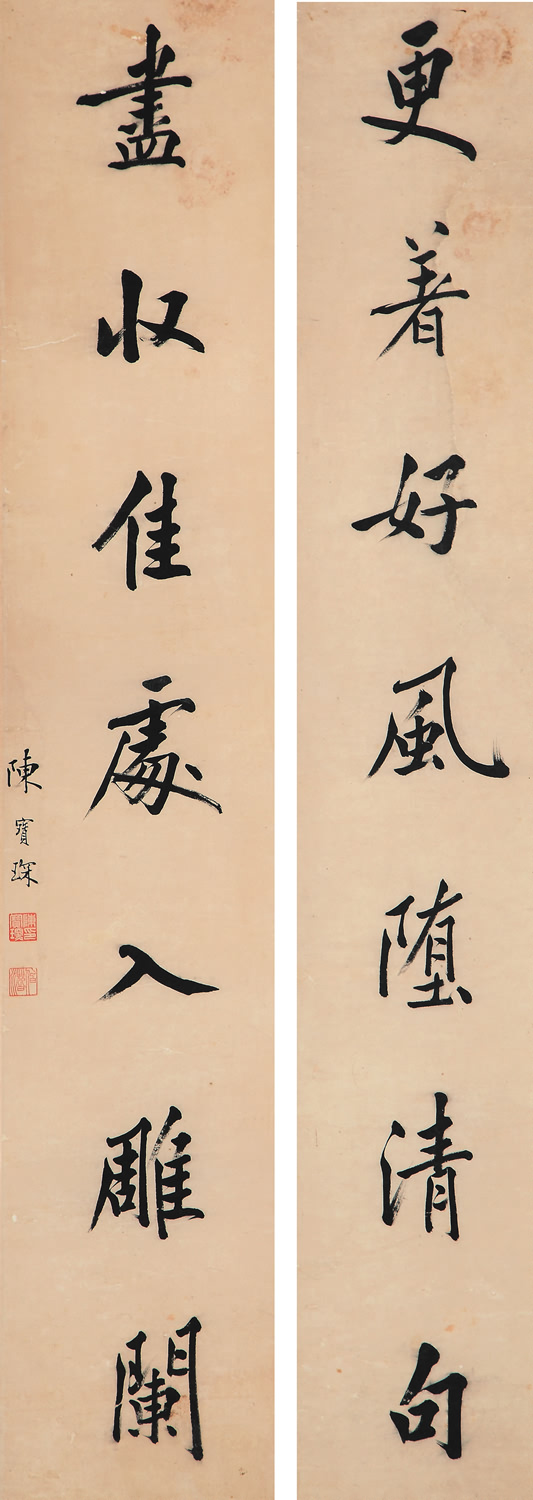 更著好風堕清句
盡收佳處入雕闌
陳寶琛